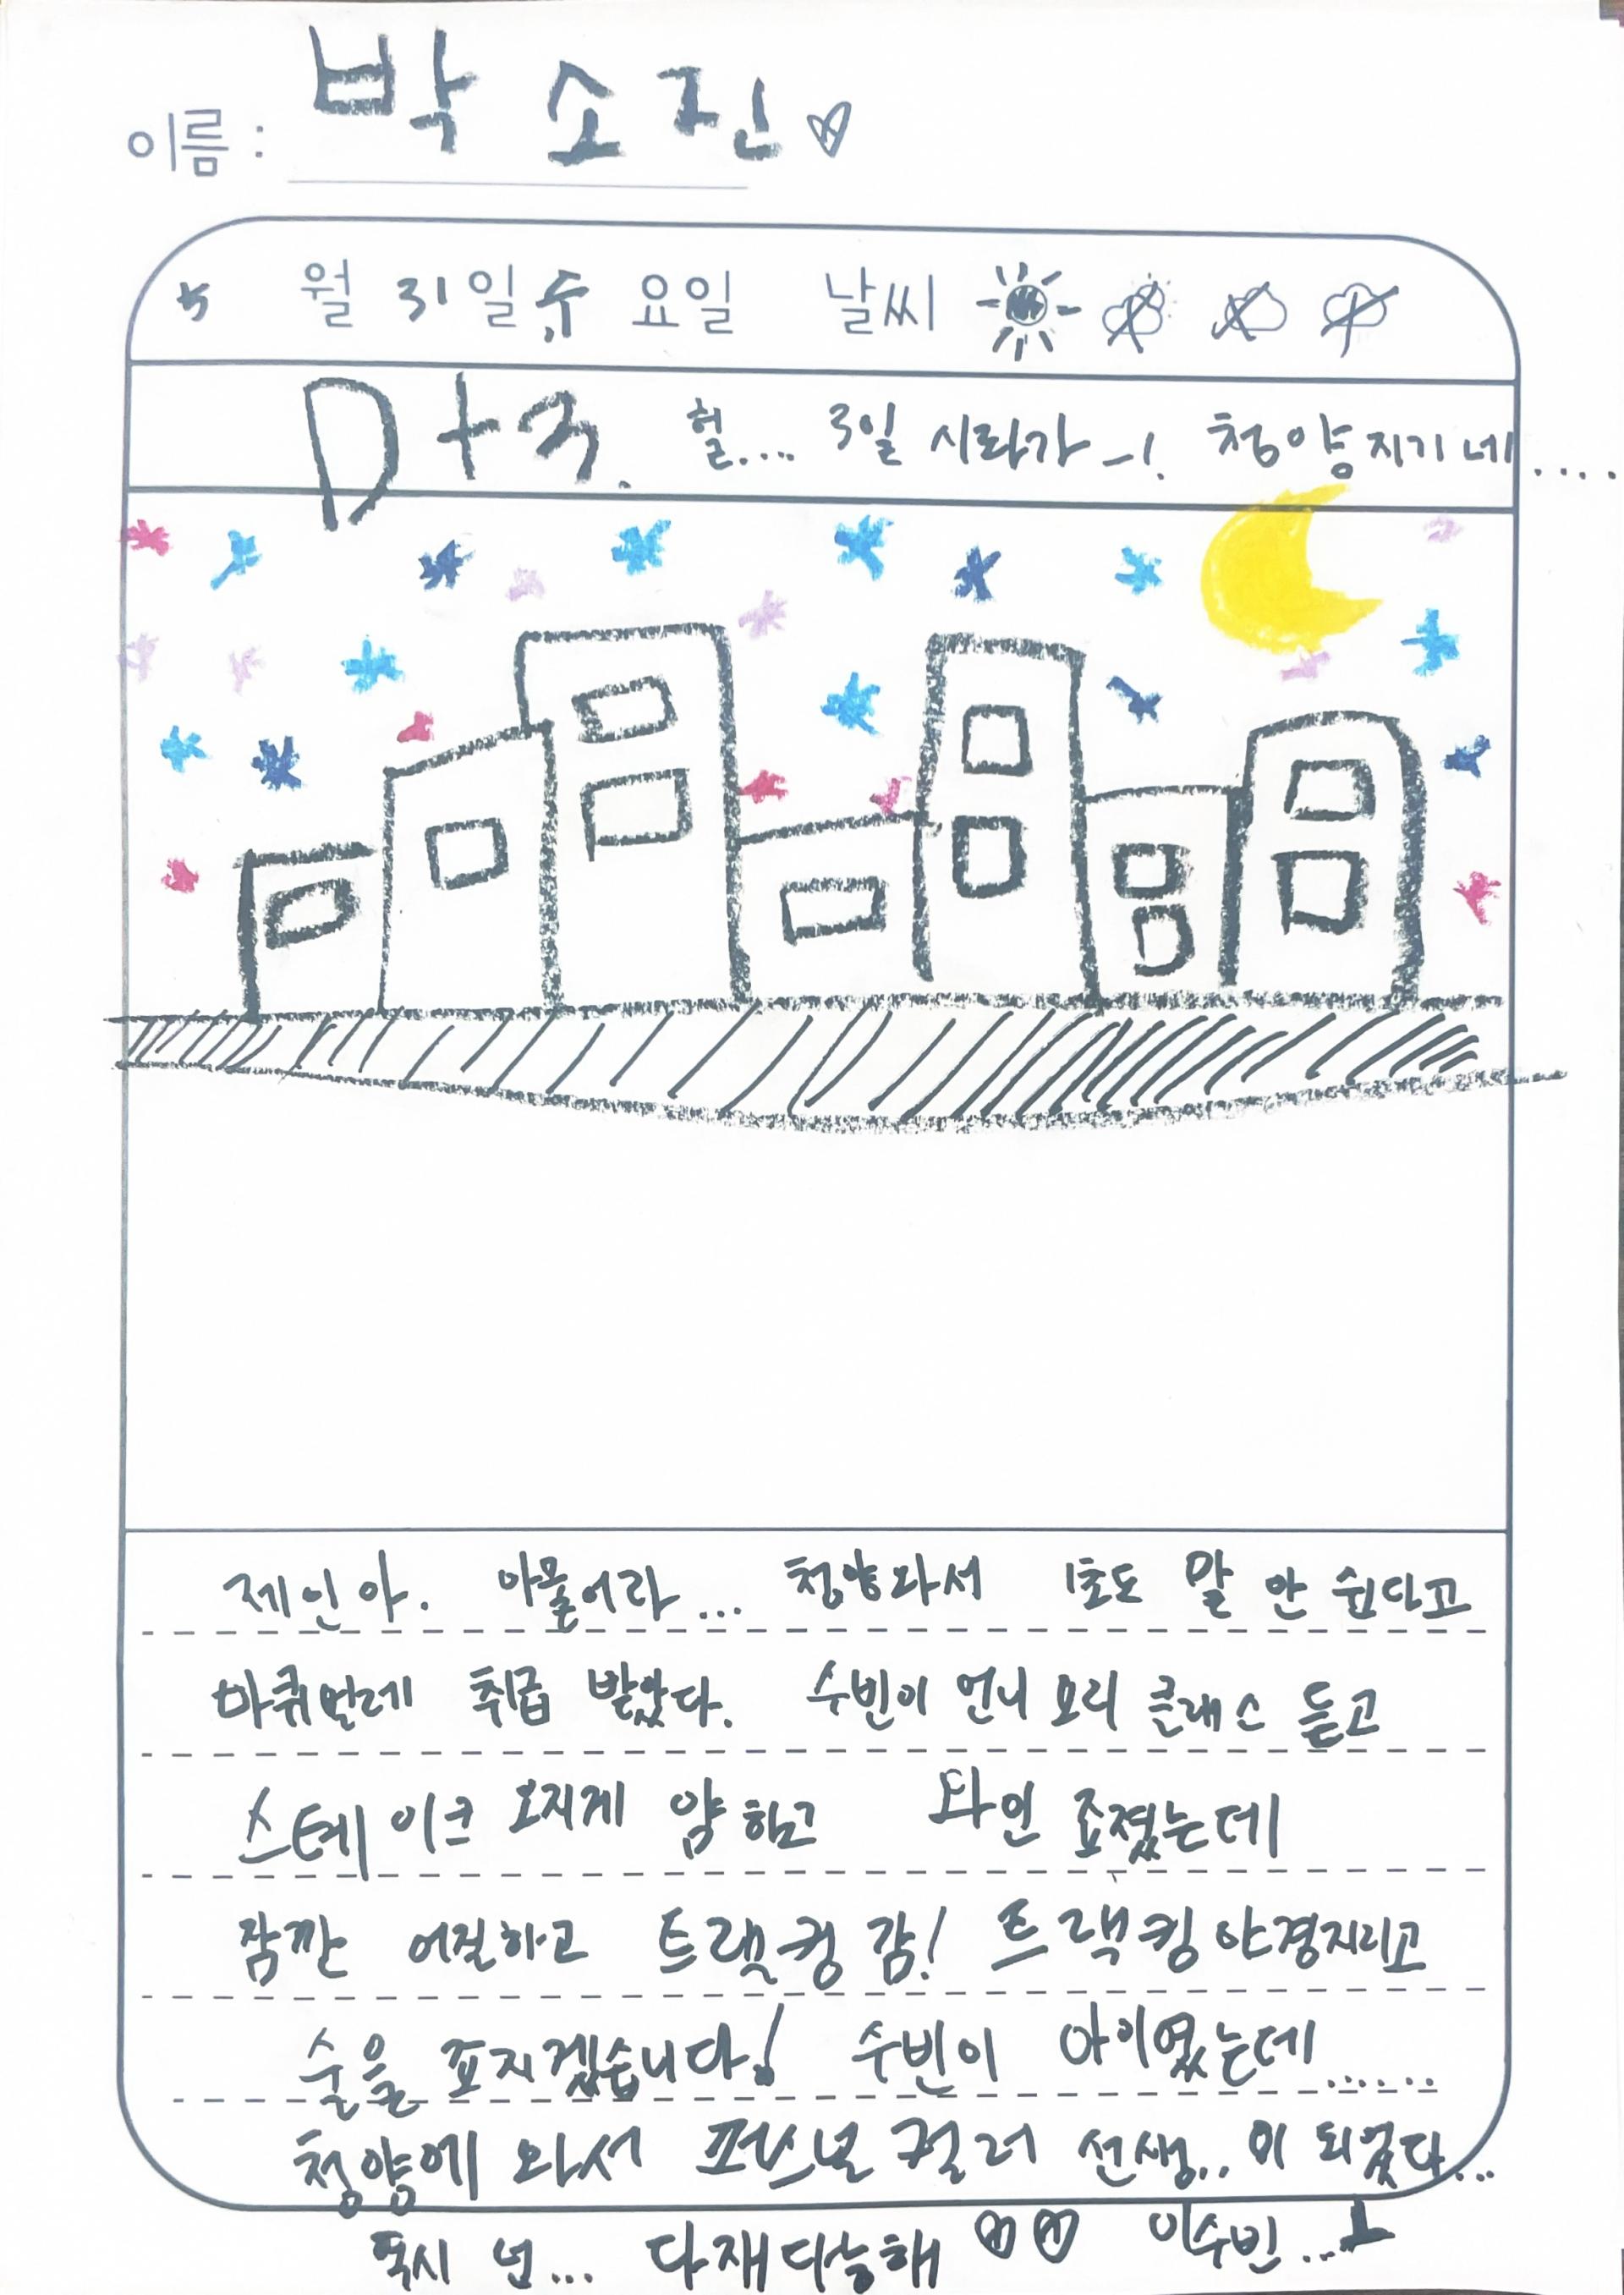 이름 : 박소진♡
5월 31일 수요일 날씨
D+3. 헐.... 3일 시라가 -! 청양 지기네....
제인아. 아물어라... 청양와서 1초도 말 안 쉰다고
마퀴벌레 취급 받았다. 수빈이 언니 요리 클래스 듣고
스테이크 오지게 얌하고 와인 죠졌는데
잠깐 어질하고 트랙킹 감! 트랙킹 야경지리고
술을 죠지겠습니다! 수빈이 아이였는데......
청양에 와서 퍼스널 컬러 선생.. 이 되었다...
혹시 넌... 다재다능해 ♡♡ 이수빈...